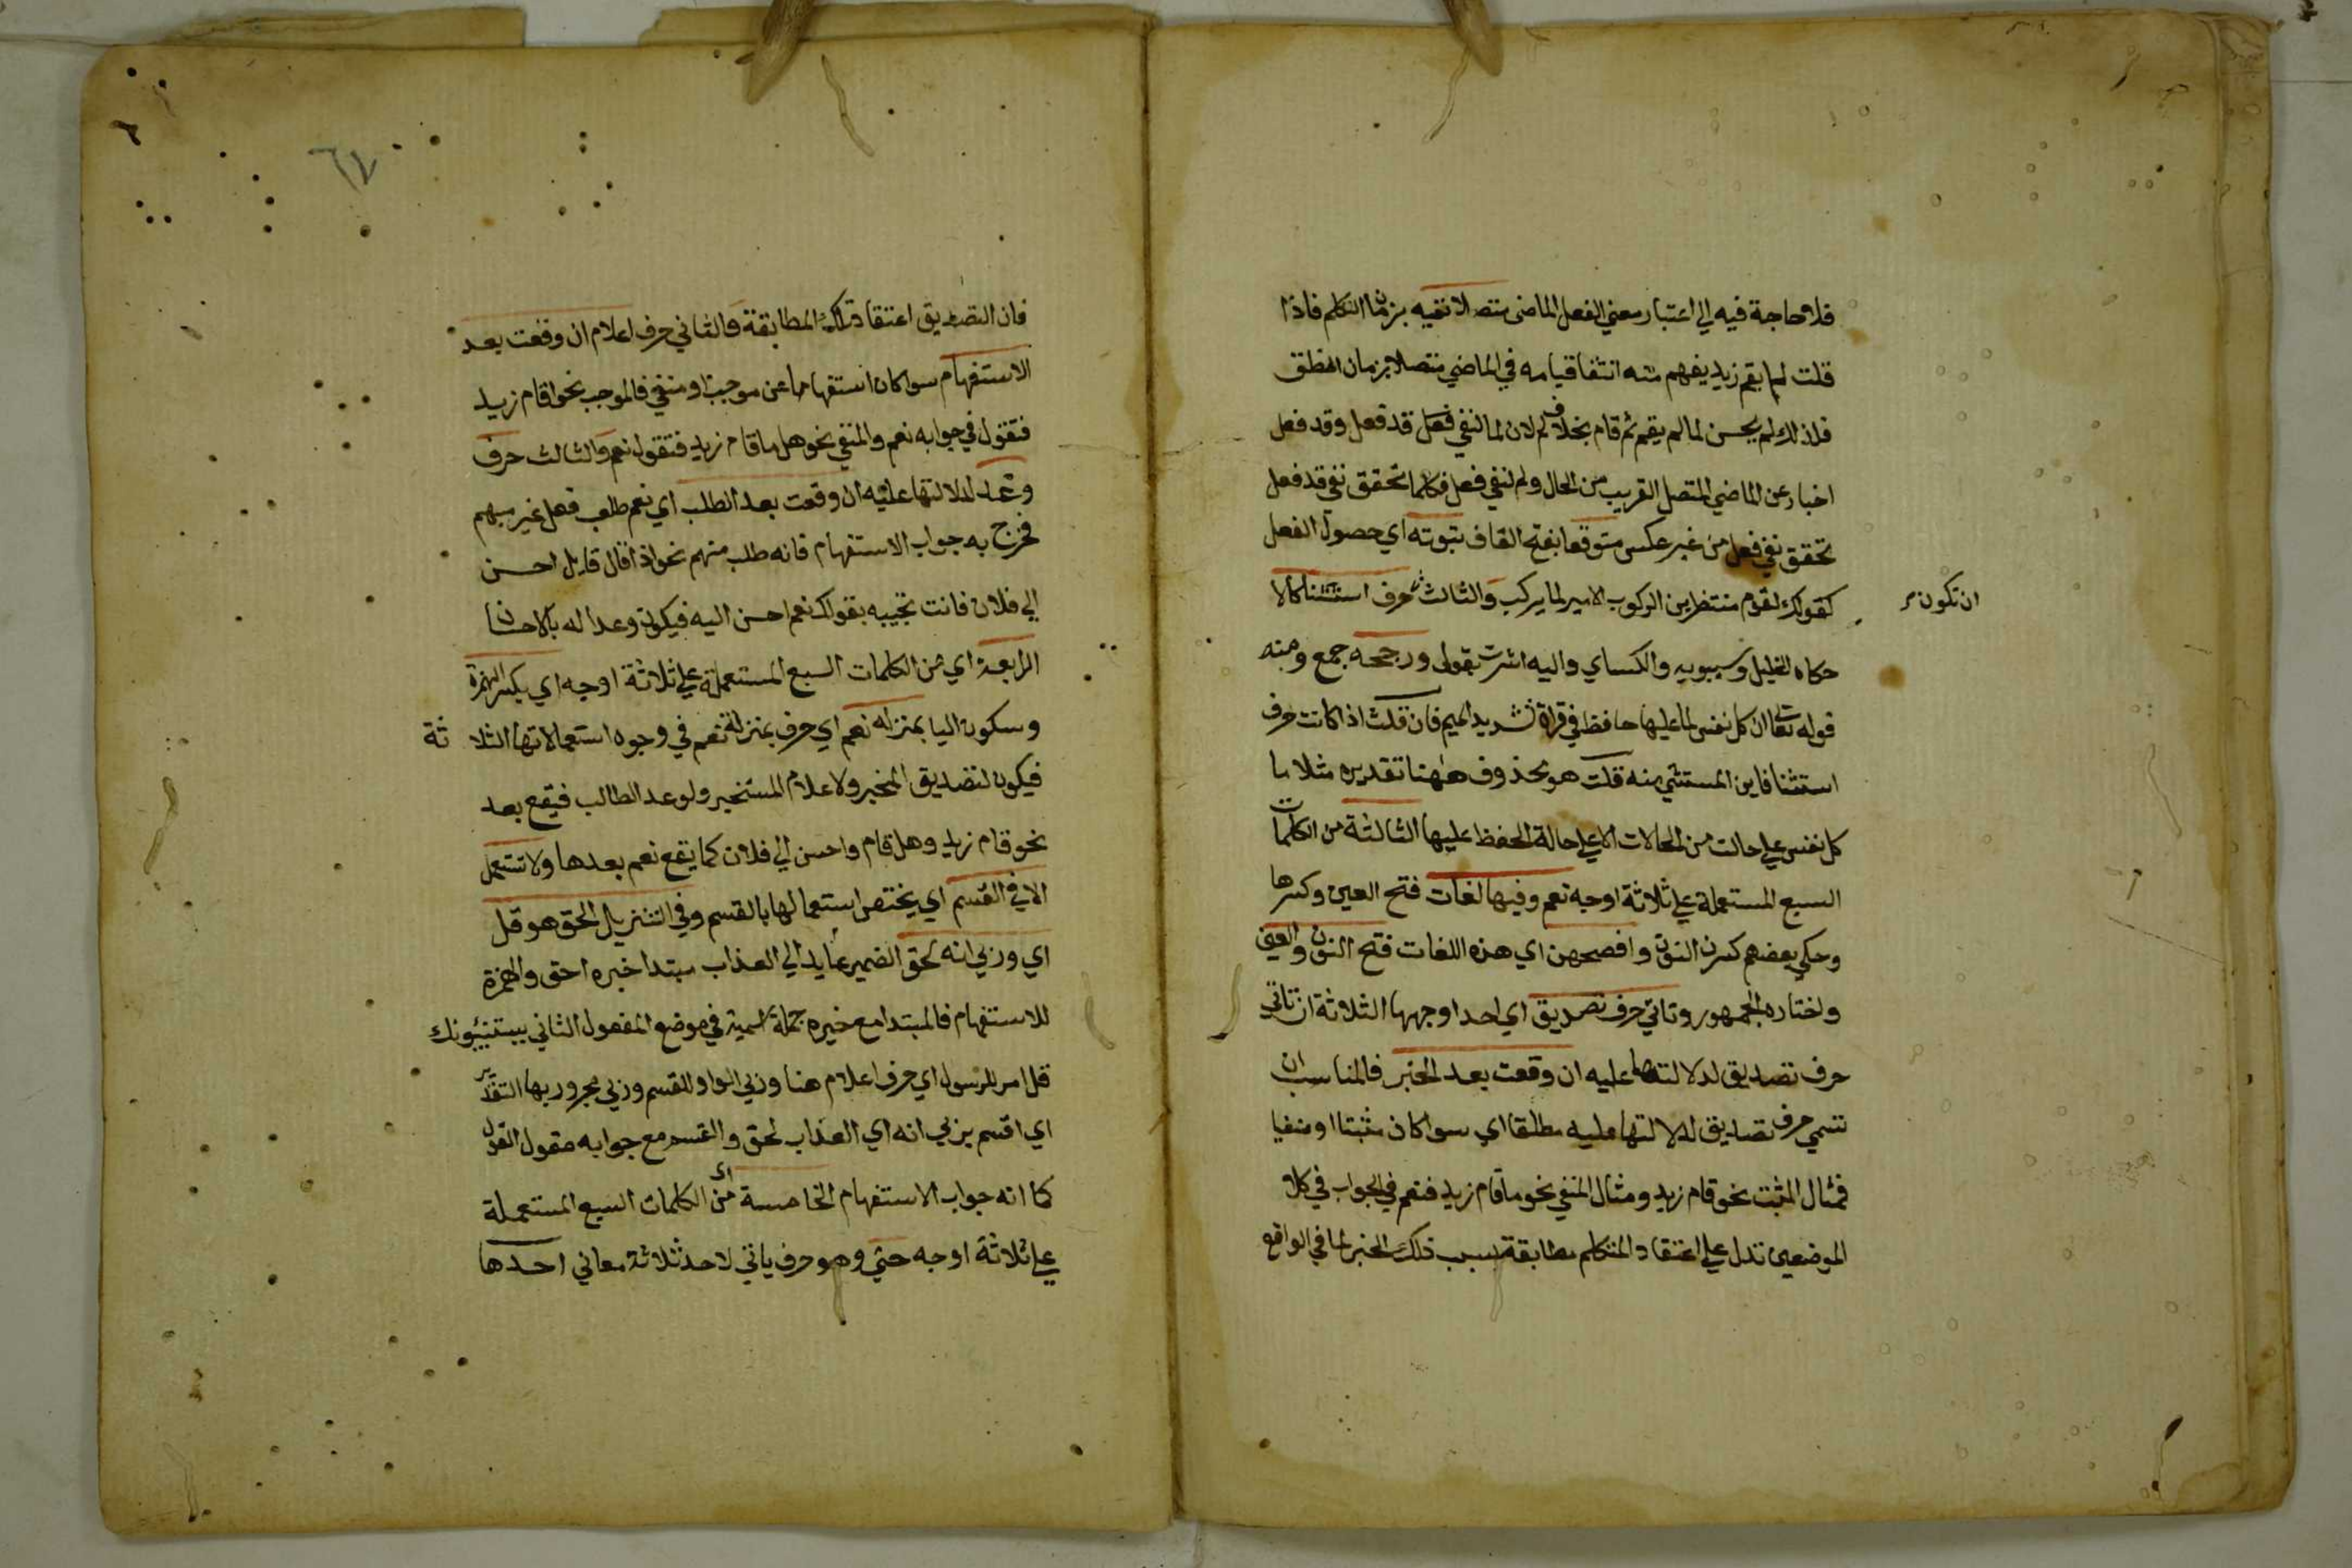 فلا حاجة فيه الي اعتبار معني الفعل الماضي متصلا نفيه بزمان التكلم فاذا
قلت لما يقم زيد يفهم منه انتفا قيامه في الماضي متصلا بزمان النطق
فلذلك لم يحسن لما لم يقم ثم قام بخلاف لم لان لما لنفي فعل قد فعل وقد فعل
اخبار عن الماضي المتصل القريب من الحال ولم لنفي فعل فكلما تحقق نفي قد فعل
تحقق نفي فعل من غير عكس متوقعا بفتح القاف ثبوته اي حصول الفعل
كقولك لقوم منتظرين الركوب الامير لما يركب والثالث حرف استثنا كالا
ان تكون
حكاه الخليل وسيبويه والكساي واليه اشرت بقولي ورجحه جمع ومنه
قوله تعالى ان كل نفس لما عليها حافظ في قراة تشديد الميم فان قلت اذا كانت حرف
استثنا فاين المستثني منه قلت هو محذوف ههنا تقديره مثلا ما
كل نفس علي حالت من الحالات الا علي حالة الحفظ عليها الثالثة من الكلمات
السبع المستعملة علي ثلاثة اوجه نعم وفيها لغات فتح العين وكسرها
وحكي بعضهم كسر النون وافصحهن اي هذه اللغات فتح النون والعين
واختاره الجمهور وتاتي حرف تصديق اي احد اوجهها الثلاثة ان تاتي
حرف تصديق لدلالتها عليه ان وقعت بعد الخبر فالمناسب ان
تسمي حرف تصديق لدلالتها عليه مطلقا اي سوا كان مثبتا او منفيا
فمثال المثبت نحو قام زيد ومثال المنفي نحو ما قام زيد فنعم في الجواب في كلا
الموضعين تدل علي اعتقاد المتكلم مطابقة سبب ذلك الخبر لما في الواقع
٦٧
فان التصديق اعتقاد تلك المطابقة والثاني حرف اعلام ان وقعت بعد
الاستفهام سوا كان استفهاما عن موجب او منفي فالموجب نحو اقام زيد
فتقول في جوابه نعم والمنفي نحو هل ما قام زيد فتقول نعم والثالث حرف
وعد لدلالتها عليه ان وقعت بعد الطلب اي نعم طلب فعل غير مبهم
فخرج به جواب الاستفهام فانه طلب منهم نحو اذا قال قايل احسن
الي فلان فانت تجيبه بقولك نعم احسن اليه فيكون وعدا له بالاحسان
الرابعة اي من الكلمات السبع المستعملة علي ثلاثة اوجه اي بكسر الهمزة
وسكون اليا بمنزله نعم اي حرف بمنزلة نعم في وجوه استعمالاتها الثلا ثة
فيكون لتصديق المخبر ولاعلام المستخبر ولوعد الطالب فيقع بعد
نحو قام زيد وهل قام واحسن الي فلان كما يقع نعم بعدها ولا تستعمل
الا في القسم اي يختص استعمالها بالقسم وفي التنزيل احق هو قل
اي وربي انه لحق الضمير عايد الي العذاب مبتدا خبره احق والهمزة
للاستفهام فالمبتدا مع خبره جملة اسمية في موضع المفعول الثاني ليستنبئونك
قل امر للرسول اي حرف اعلام هنا وربي الواو للقسم وربي مجرور بها التقدير
اي اقسم بربي انه اي العذاب لحق والقسم مع جوابه مقول القول
كما انه جواب الاستفهام الخامسة اي من الكلمات السبع المستعملة
علي ثلاثة اوجه حتي وهو حرف ياتي لاحد ثلاثة معاني احدها